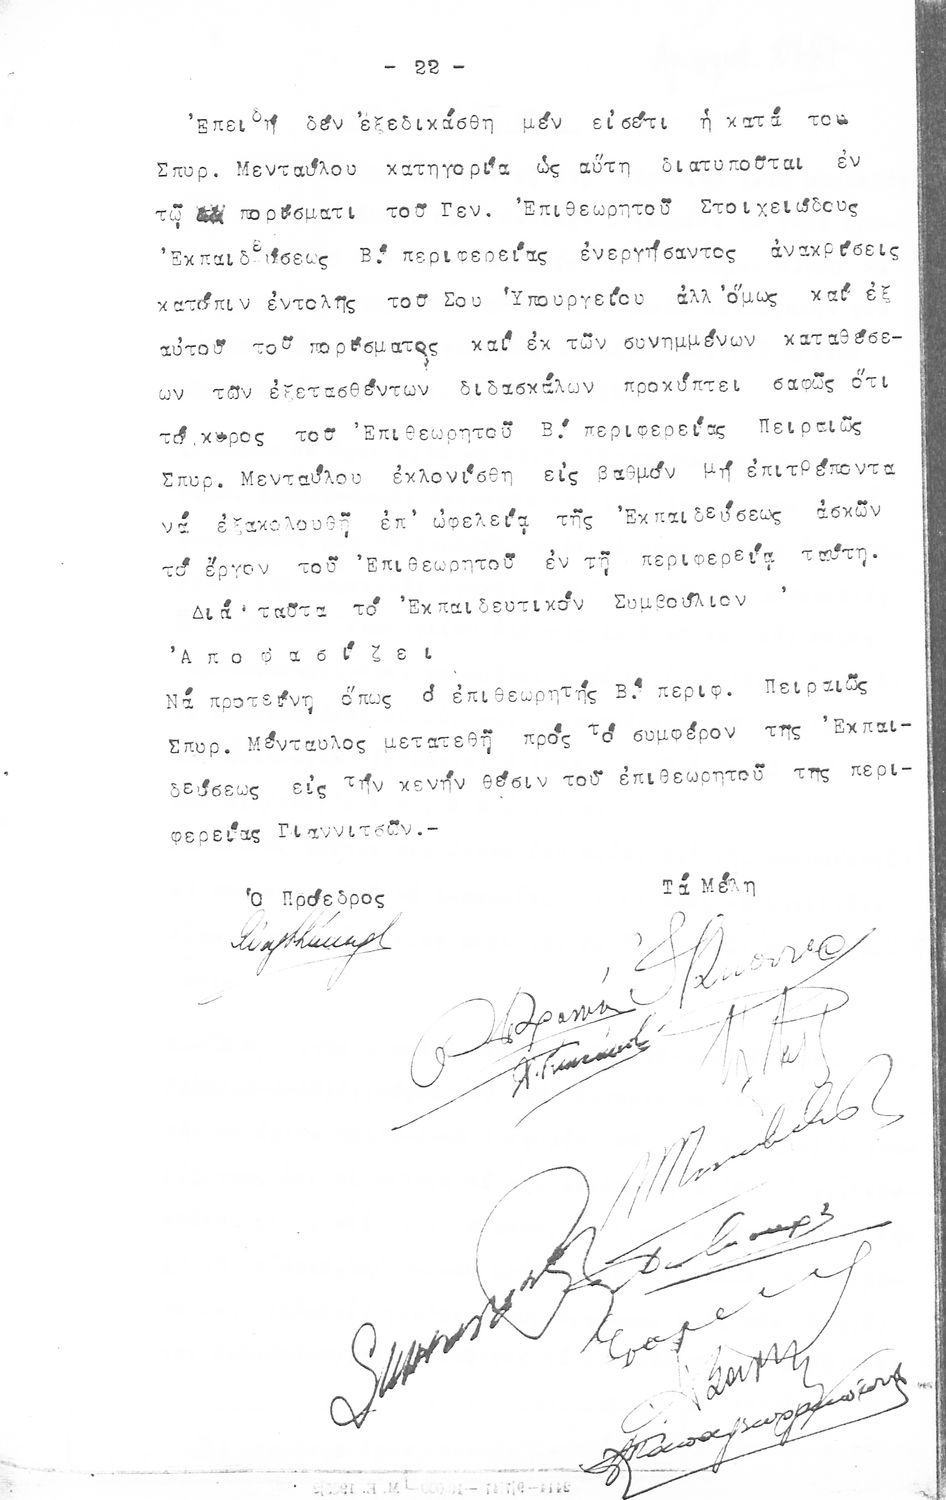 - 22 -
Ἐπειδή δέν ἐξεδικάσθη μέν εἰσέτι ἡ κατά του
Σπυρ. Μενταύλου κατηγορία ὡς αὕτη διατυποῦται ἐν
τῷ πορίσματι τοῦ Γεν. Ἐπιθεωρητοῦ Στοιχειώδους
Ἐκπαιδεύσεως Β.' περιφερείας ἐνεργήσαντος ἀνακρίσεις
κατόπιν ἐντολῆς τοῦ Σου Ὑπουργείου ἀλλ' ὅμως καί ἐξ
αὐτοῦ τοῦ πορίσματος καί ἐκ τῶν συνημμένων καταθέσε-
ων τῶν ἐξετασθέντων διδασκάλων προκύπτει σαφῶς ὅτι
τό κῦρος τοῦ Ἐπιθεωρητοῦ Β.' περιφερείας Πειραιῶς
Σπυρ. Μενταύλου ἐκλονίσθη εἰς βαθμόν μή ἐπιτρέποντα
νά ἐξακολουθῇ ἐπ' ὠφελείᾳ τῆς Ἐκπαιδεύσεως ἀσκῶν
τό ἔργον τοῦ Ἐπιθεωρητοῦ ἐν τῇ περιφερείᾳ ταύτῃ.
Διά ταῦτα τό Ἐκπαιδευτικόν Συμβούλιον
Ἀ π ο φ α σ ί ζ ε ι
Νά προτείνῃ ὅπως ὁ ἐπιθεωρητής Β.' περιφ. Πειραιῶς
Σπυρ. Μένταυλος μετατεθῇ πρός τό συμφέρον τῆς Ἐκπαι-
δεύσεως εἰς τήν κενήν θέσιν τοῦ ἐπιθεωρητοῦ τῆς περι-
φερείας Γιαννιτσῶν.-
Ὁ Πρόεδρος Τά Μέλη